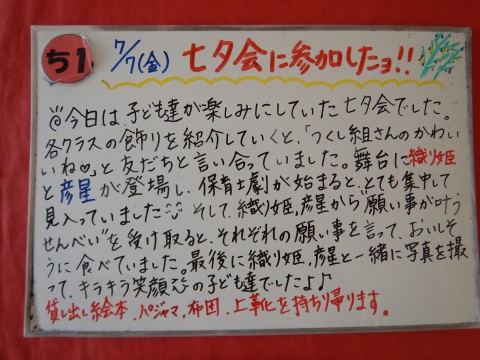 ち1
7/7(金) 七夕会に参加したョ!!
今日は子ども達が楽しみにしていた七夕会でした。
各クラスの飾りを紹介していくと、「つくし組さんのかわい
いね♡」と友だちと言い合っていました。舞台に織り姫
と彦星が登場し、保育士劇が始まると、とても集中して
見入っていました。そして、織り姫,彦星から"願い事が叶う
せんべい"を受け取ると、それぞれの願い事を言って、おいしそ
うに食べていました。最後に織り姫,彦星と一緒に写真を撮
って、キラキラ笑顔の子ども達でしたよ♪
貸し出し絵本、パジャマ、布団、上靴を持ち帰ります。